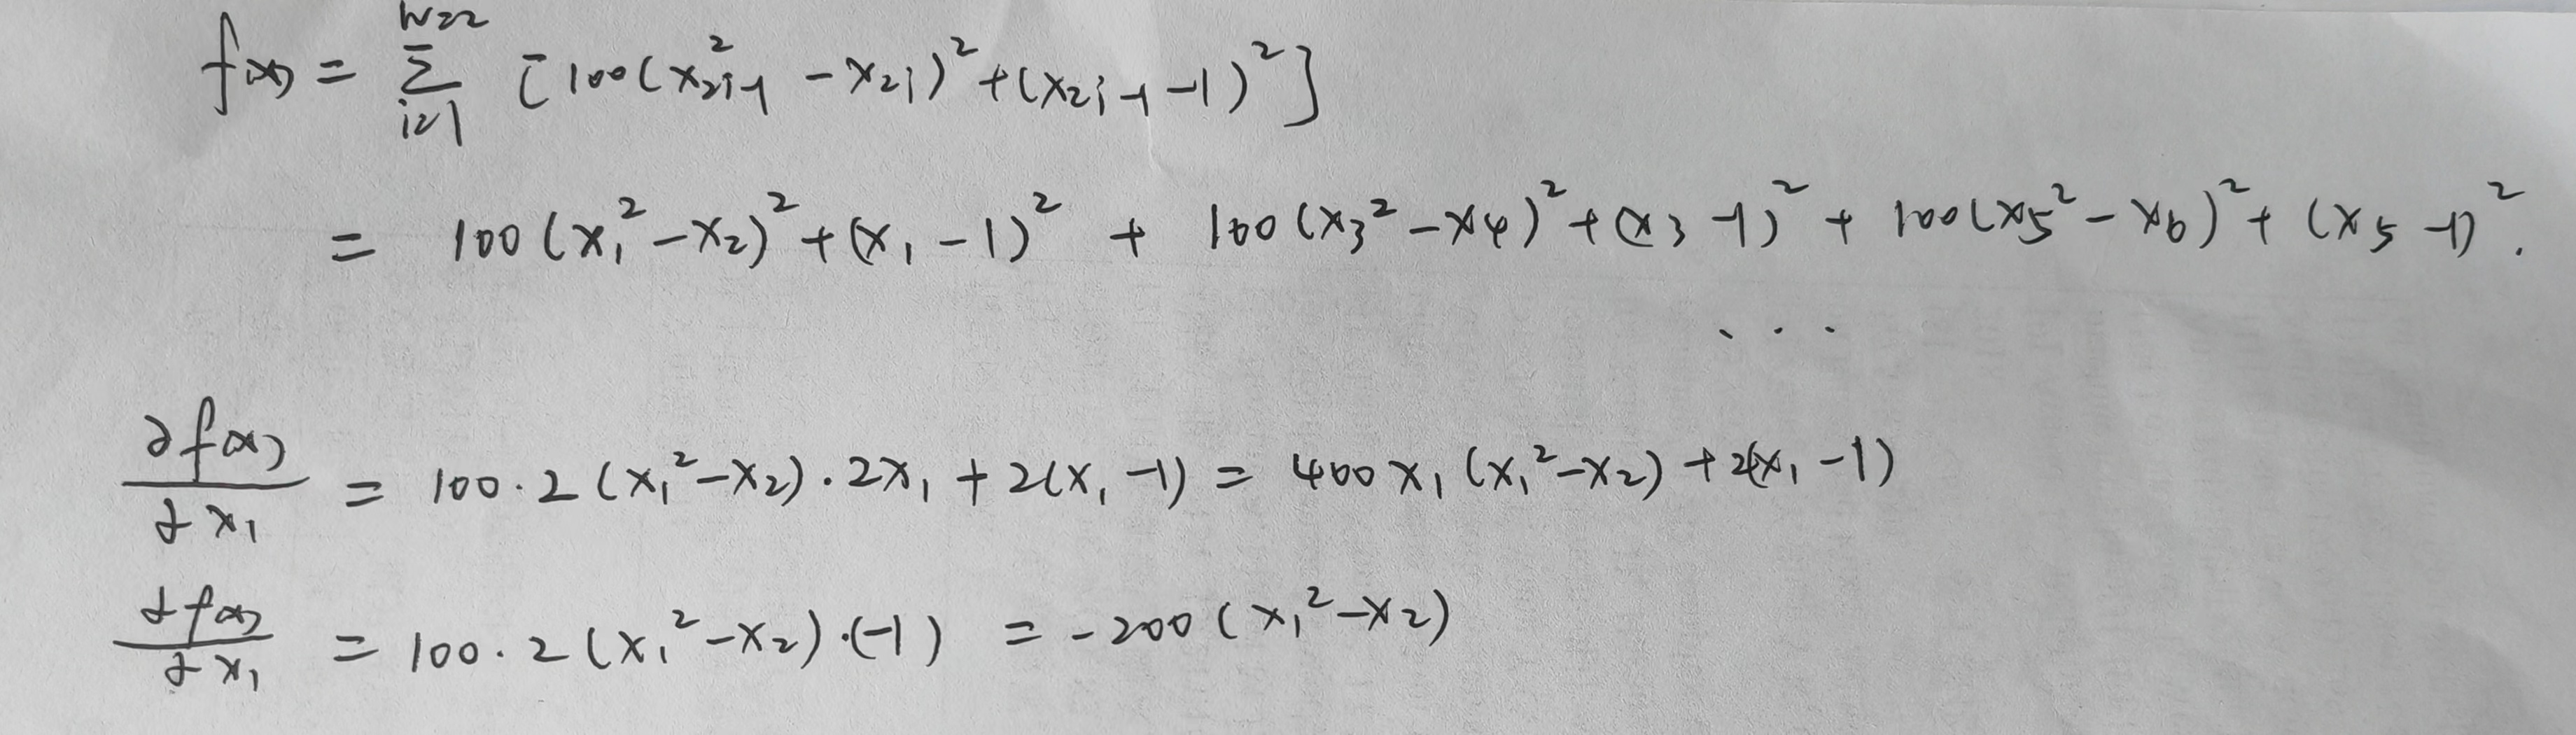 f(x) = Σ_{i=1}^{N=2} [100(x_{2i-1}^2 - x_{2i})^2 + (x_{2i-1} - 1)^2]
= 100(x_1^2 - x_2)^2 + (x_1 - 1)^2 + 100(x_3^2 - x_4)^2 + (x_3 - 1)^2 + 100(x_5^2 - x_6)^2 + (x_5 - 1)^2.
...
∂f(x)/∂x_1 = 100·2(x_1^2 - x_2)·2x_1 + 2(x_1 - 1) = 400x_1(x_1^2 - x_2) + 2(x_1 - 1)
∂f(x)/∂x_1 = 100·2(x_1^2 - x_2)·(-1) = -200(x_1^2 - x_2)